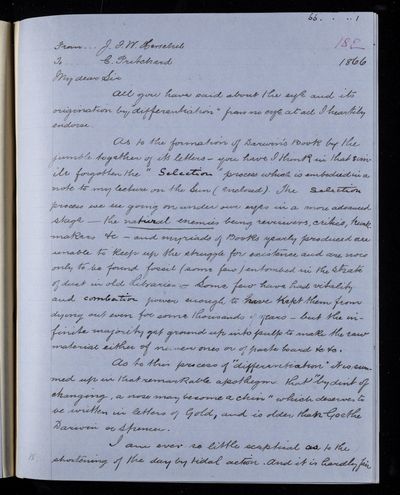 66 . . . . 1
From ... J. F. W. Herschel 185
To ... C. Pritchard 1866
My dear Sir
All you have said about the eye and its
origination by "differentiation" from no eye at all I heartily
endorse.
As to the formation of Darwin's Book by the
jumble together of its letters - you have I think in that sim-
ile forgotten the "Selection" process which is embodied in a
note to my lecture on the Sun (enclosed). The Selection
process we see going on under our eyes in a more advanced
stage - the natural enemies being reviewers, critics, trunk
makers &c - and myriads of Books yearly produced are
unable to keep up the struggle for existence and are now
only to be found fossil (some few) entombed in the strata
of dust in old libraries - Some few have had vitality
and combative power enough to have kept them from
dying out even for some thousands of years - but the in-
finite majority get ground up into pulp to make the raw
material either of newer ones or of paste board &c &c.
As to this process of "differentiation" it is sum-
med up in that remarkable apothegm that "by dint of
changing, a nose may become a chin" which deserves to
be written in letters of Gold, and is older than Goethe
Darwin or Spencer.
I am ever so little sceptical as to the
shortening of the day by tidal action. And it is hardly fair